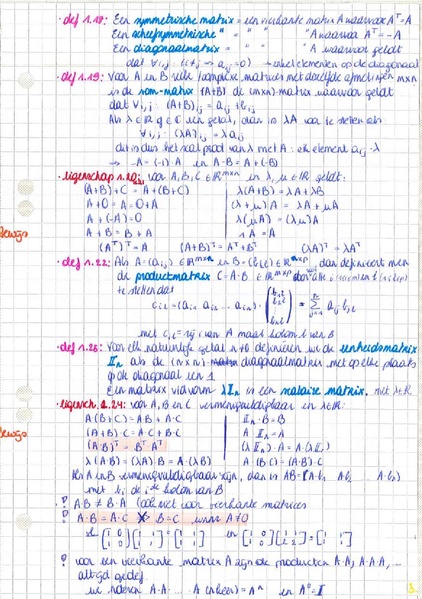 · def 1.18: Een symmetrische matrix = een vierkante matrix A waarvoor Aᵀ = A
Een scheefsymmetrische " = " " " A waarvoor Aᵀ = -A
Een diagonaalmatrix = " " " A waarvoor geldt
dat ∀i,j: (i≠j → aᵢⱼ = 0) → enkel elementen op de diagonaal
· def 1.19: Voor A en B reële/complexe matrices met dezelfde afmetingen m×n
is de som-matrix (A+B) de (m×n)-matrix waarvoor geldt
dat ∀i,j: (A+B)ᵢⱼ = aᵢⱼ + bᵢⱼ
Als λ ∈ ℝ of ∈ ℂ een getal, dan is λA voor te stellen als
∀i,j: (λA)ᵢⱼ = λaᵢⱼ
dit is dus het scal prod van λ met A: elk element aᵢⱼ·λ
→ -A = (-1)·A en A-B = A+(-B)
· eigenschap 1.20: voor A,B,C ∈ ℝᵐˣⁿ en λ,μ ∈ ℝ geldt:
(A+B)+C = A+(B+C) | λ(A+B) = λA+λB
A+0 = A = 0+A | (λ+μ)A = λA+μA
A+(-A) = 0 | λ(μA) = (λμ)A
Bewijs
A+B = B+A | 1A = A
(Aᵀ)ᵀ = A (A+B)ᵀ = Aᵀ+Bᵀ (λA)ᵀ = λAᵀ
· def 1.22: Als A = (aᵢⱼ) ∈ ℝᵐˣⁿ en B = ∈ ℝⁿˣᵖ, dan definieert men
de productmatrix C = A·B ∈ ℝᵐˣᵖ door
te stellen dat
met = rij i van A maal kolom van B
· def 1.23: Voor elk natuurlijk getal n≠0 definiëren we de eenheidsmatrix
𝕀ₙ als de (n×n) diagonaalmatrix met op elke plaats
op de diagonaal een 1
Een matrix van vorm λ𝕀ₙ is een scalaire matrix, met λ∈ℝ
· eigensch. 1.24: voor A, B en C vermenigvuldigbaar en λ∈ℝ:
A(B+C) = A·B + A·C | 𝕀ₙ·B = B
Bewijs
(A+B)·C = A·C + B·C | A·𝕀ₙ = A
(A·B)ᵀ = Bᵀ·Aᵀ | (λ𝕀ₙ)·A = A·(λ𝕀ₙ)
λ(A·B) = (λA)·B = A·(λB) | A·(B·C) = (A·B)·C
Als A en B vermenigvuldigbaar zijn, dan is AB = (A·b₁ A·b₂ ... A·bₙ)
met bᵢ de iᵈᵉ kolom van B
! A·B ≠ B·A (ook niet voor vierkante matrices
! A·B = A·C ⇏ B = C A≠0
! voor een vierkante matrix A zijn de producten A·A, A·A·A, ...
altijd gedef
we noteren A·A· ... ·A (n keer) = Aⁿ en A⁰ = 𝕀